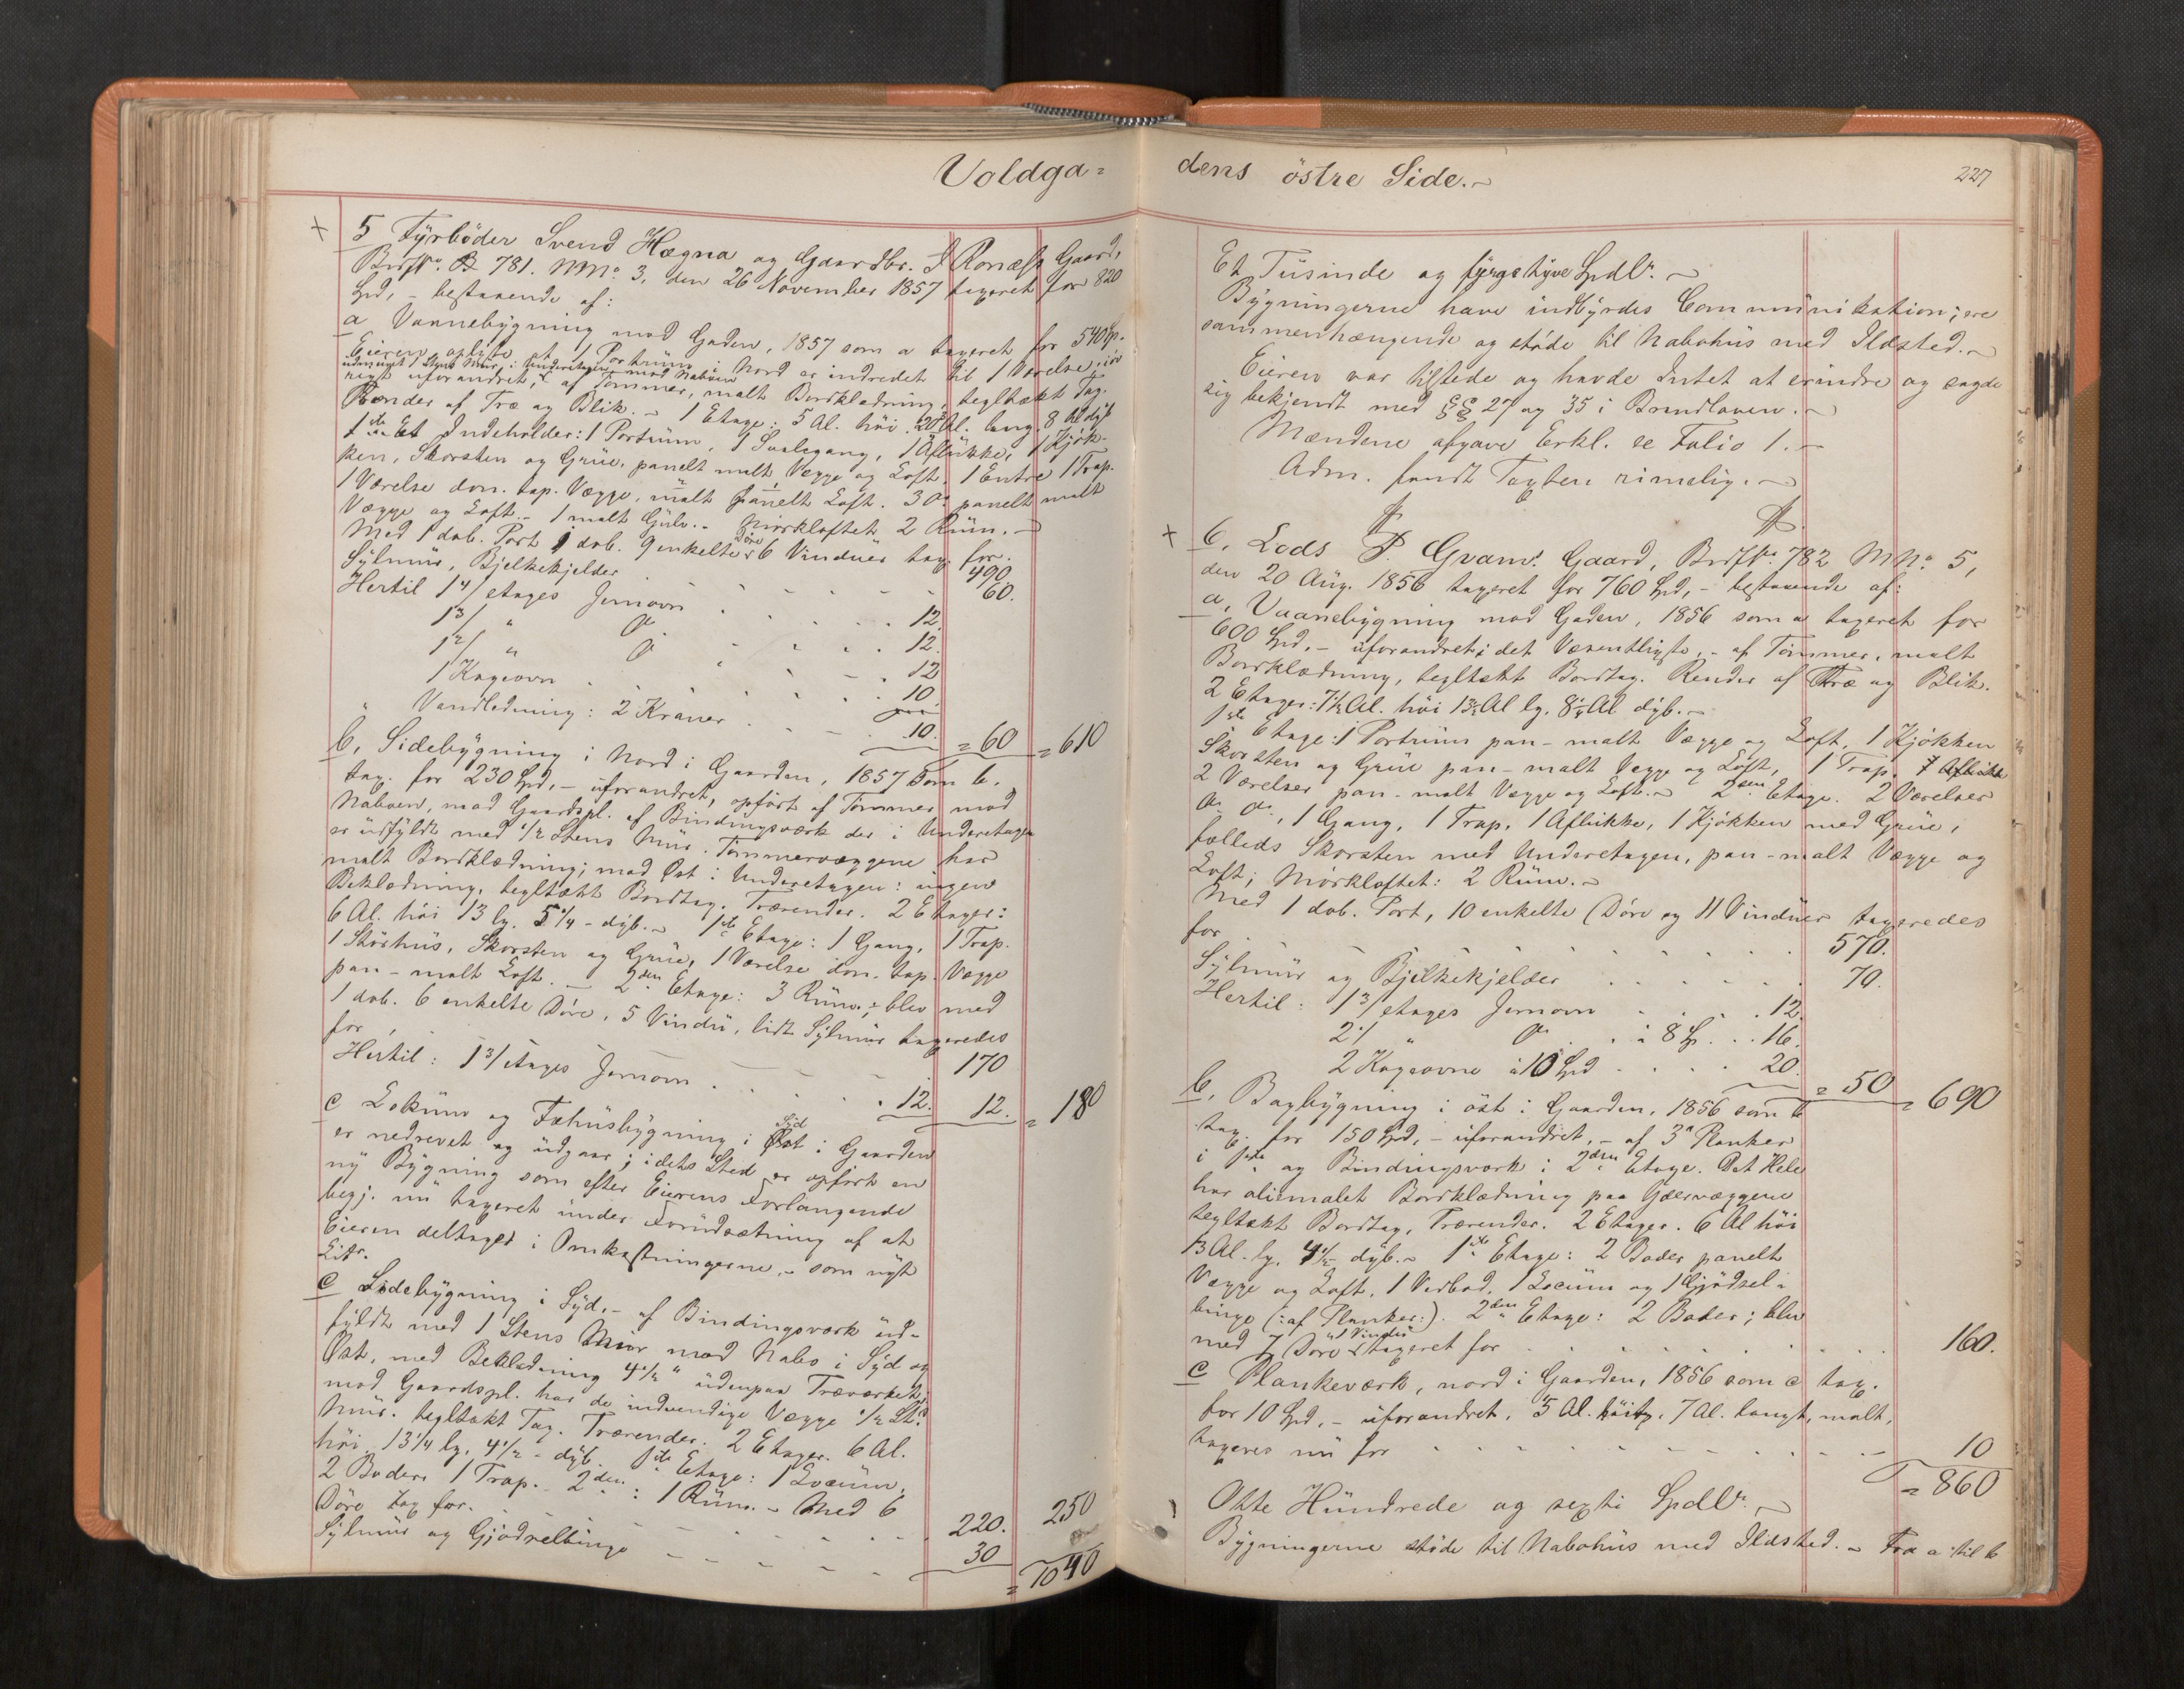 Voldga=
5 Fyrböder Svend Hægna og Gaardbr. I Ronæss Gaard,
Brdfr. B 781. MNo. 3, den 26 November 1857 taxeret for 820
Spd, - bestaaende af:
a Vaanebygning mod Gaden, 1857 som a taxeret for 540 Sp.
Eieren oplyste at 1 Portrüm i Nord er indredet til 1 Værelse, iøv
rigt uforandret, af Tömmer, malt Bordklædning, tegltækt Tag.
Render af Træ og Blik. - 1 Etage: 5 Al. höi 20 Al. lang 8 Al dyb
1ste Et Indeholder: 1 Portrüm, 1 Svalegang, 1 Aflükke, 1 Kjök-
ken, Skorsten og Grüe, panelt malt Vægge og Loft, 1 Entre 1 Trap.
1 Værelse don. tap. Vægge, malt panelt Loft. 3 do panelt malt
Vægge og Loft. - 1 malt Gülv. - Mörkloftet 2 Rüm. -
Med 1 dob. Port 1 dob. 9 enkelte Döre 6 Vindüer tax. for. 490
Sylmür, Bjelkekjelder 60.
Hertil 1 4/ etages Jernovn . . . . 12.
1 3/ " do . . . . 12.
1 2/ " do . . . . 12
1 Kageovn . . . . 10
" Vandledning: 2 Kraner . . . 10. = 60 = 610
b, Sidebygning i Nord i Gaarden, 1857 som b.
tax. for 230 Spd, - uforandret, opfört af Tömmer mod
Naboen, mod Gaardspl. af Bindingsværk der i Underetagen
er üdfyldt med 1/2 Stens Mür. Tömmervæggene har
malt Bordklædning; mod Öst i Underetagen: ingen
Beklædning, tegltækt Bordtag. Trærender. 2 Etager:
6 Al. höi 13 lg. 5 1/4 - dyb. - 1ste Etage: 1 Gang, 1 Trap.
1 Skörhüs, Skorsten og Grüe, 1 Værelse don. tap. Vægge
pan - malt Loft. — 2den Etage: 3 Rüm; - blev med
1 dob. 6 enkelte Döre, 5 Vindü, lidt Sylmür taxeredes
for . . . . 170
Hertil: 1 3/ etages Jernovn . . . . 12. 12. = 180
c Loküm og Fæhüsbygning i Syd Öst i Gaarden
er nedrevet og üdgaar; i dets Sted er opfört en
ny Bygning som efter Eierens Forlangende
begj. nü taxeret ünder Forüdsætning af at
Eieren deltager i Omkostningerne, - som nyt
Litr.
c Sidebygning i Syd, - af Bindingsværk üd-
fyldt med 1 Stens Mür mod Nabo i Syd og
Öst, med Beklædning 4 1/2 " üdenpaa Træværket;
mod Gaardspl. har de indvendige Vægge 1/2 St.
Mür. tegltækt Tag. Trærender. 2 Etager. 6 Al.
höi 13 1/4 lg. 4 1/2 - dyb. 1ste Etage: 1 Locüm,
2 Boder. 1 Trap. - 2den " : 1 Rüm. - Med 6
Döre tax for. . . . . 220. 250
Sylmür og Gjödselbinge . . . . 30
= 1040
dens östre Side. -
227
Et Tüsinde og fyrgetyve Spdlr. -
Bygningerne have indbyrdes Communikation; ere
sammenhængende og stöde til Nabohüs med Ildsted. -
Eieren var tilstede og havde Intet at erindre og sagde
sig bekjendt med §§ 27 og 35 i Brandloven. -
Mændene afgave Erkl. se Folio 1. -
Adm. fandt Taxten rimelig. -
6, Lods P. Gvams Gaard, Brdfr. 782 MNo. 5,
den 20 Aüg. 1856 taxeret for 760 Spd, - bestaaende af:
a, Vaanebygning mod Gaden, 1856 som a taxeret for
600 Spd, - üforandret i det Væsentligste, - af Tömmer, malt
Bordklædning, tegltækt Bordtag. Render af Træ og Blik.
2 Etager: 7 1/2 Al. höi 13 3/4 Al lg. 8 1/4 Al dyb. -
1ste Etage: 1 Portrüm pan - malt Vægge og Loft, 1 Kjökken
Skorsten og Grüe pan - malt Vægge og Loft, 1 Trap, 1 Aflükke
2 Værelser pan - malt Vægge og Loft. - 2den Etage. 2 Værelser
do do, 1 Gang, 1 Trap, 1 Aflükke, 1 Kjökken med Grüe,
fælleds Skorsten med Underetagen, pan - malt Vægge og
Loft; Mörkloftet: 2 Rüm. -
Med 1 dob. Port, 10 enkelte Döre og 11 Vindüer taxeredes
for . . . . 570.
Sylmür og Bjelkekjelder . . . . 70.
Hertil: 1 3/ etages Jernovn . . . . 12.
2 2/ " do . . à 8 Sp. . . 16.
2 Kageovne à 10 Spd . . . . 20. = 50 = 690
b, Bagbygning i öst i Gaarden, 1856 som b
tax. for 150 Spd, - üforandret, - af 3" Planker
i 1ste og Bindingsværk i 2den Etage. Det Hele
har oliemalet Bordklædning paa Ydervæggene
tegltækt Bordtag, Trærender. 2 Etager. 6 Al höi
13 Al. lg. 4 1/2 - dyb. - 1ste Etage: 2 Boder panelt
Vægge og Loft, 1 Vedbod, 1 Locüm og 1 Gjödsel-
binge (: af Planker :). 2den Etage: 2 Boder; blev
med 7 Döre 1 Vindü taxeret for . . . . 160.
c Plankeværk, nord i Gaarden, 1856 som c tax.
for 10 Spd, - üforandret, 5 Al. höit, 7 Al. langt, malt,
taxeres nü for . . . . 10
= 860
Otte Hündrede og sexti Spdlr. -
Bygningerne stöde til Nabohüs med Ildsted. - Fra a til b